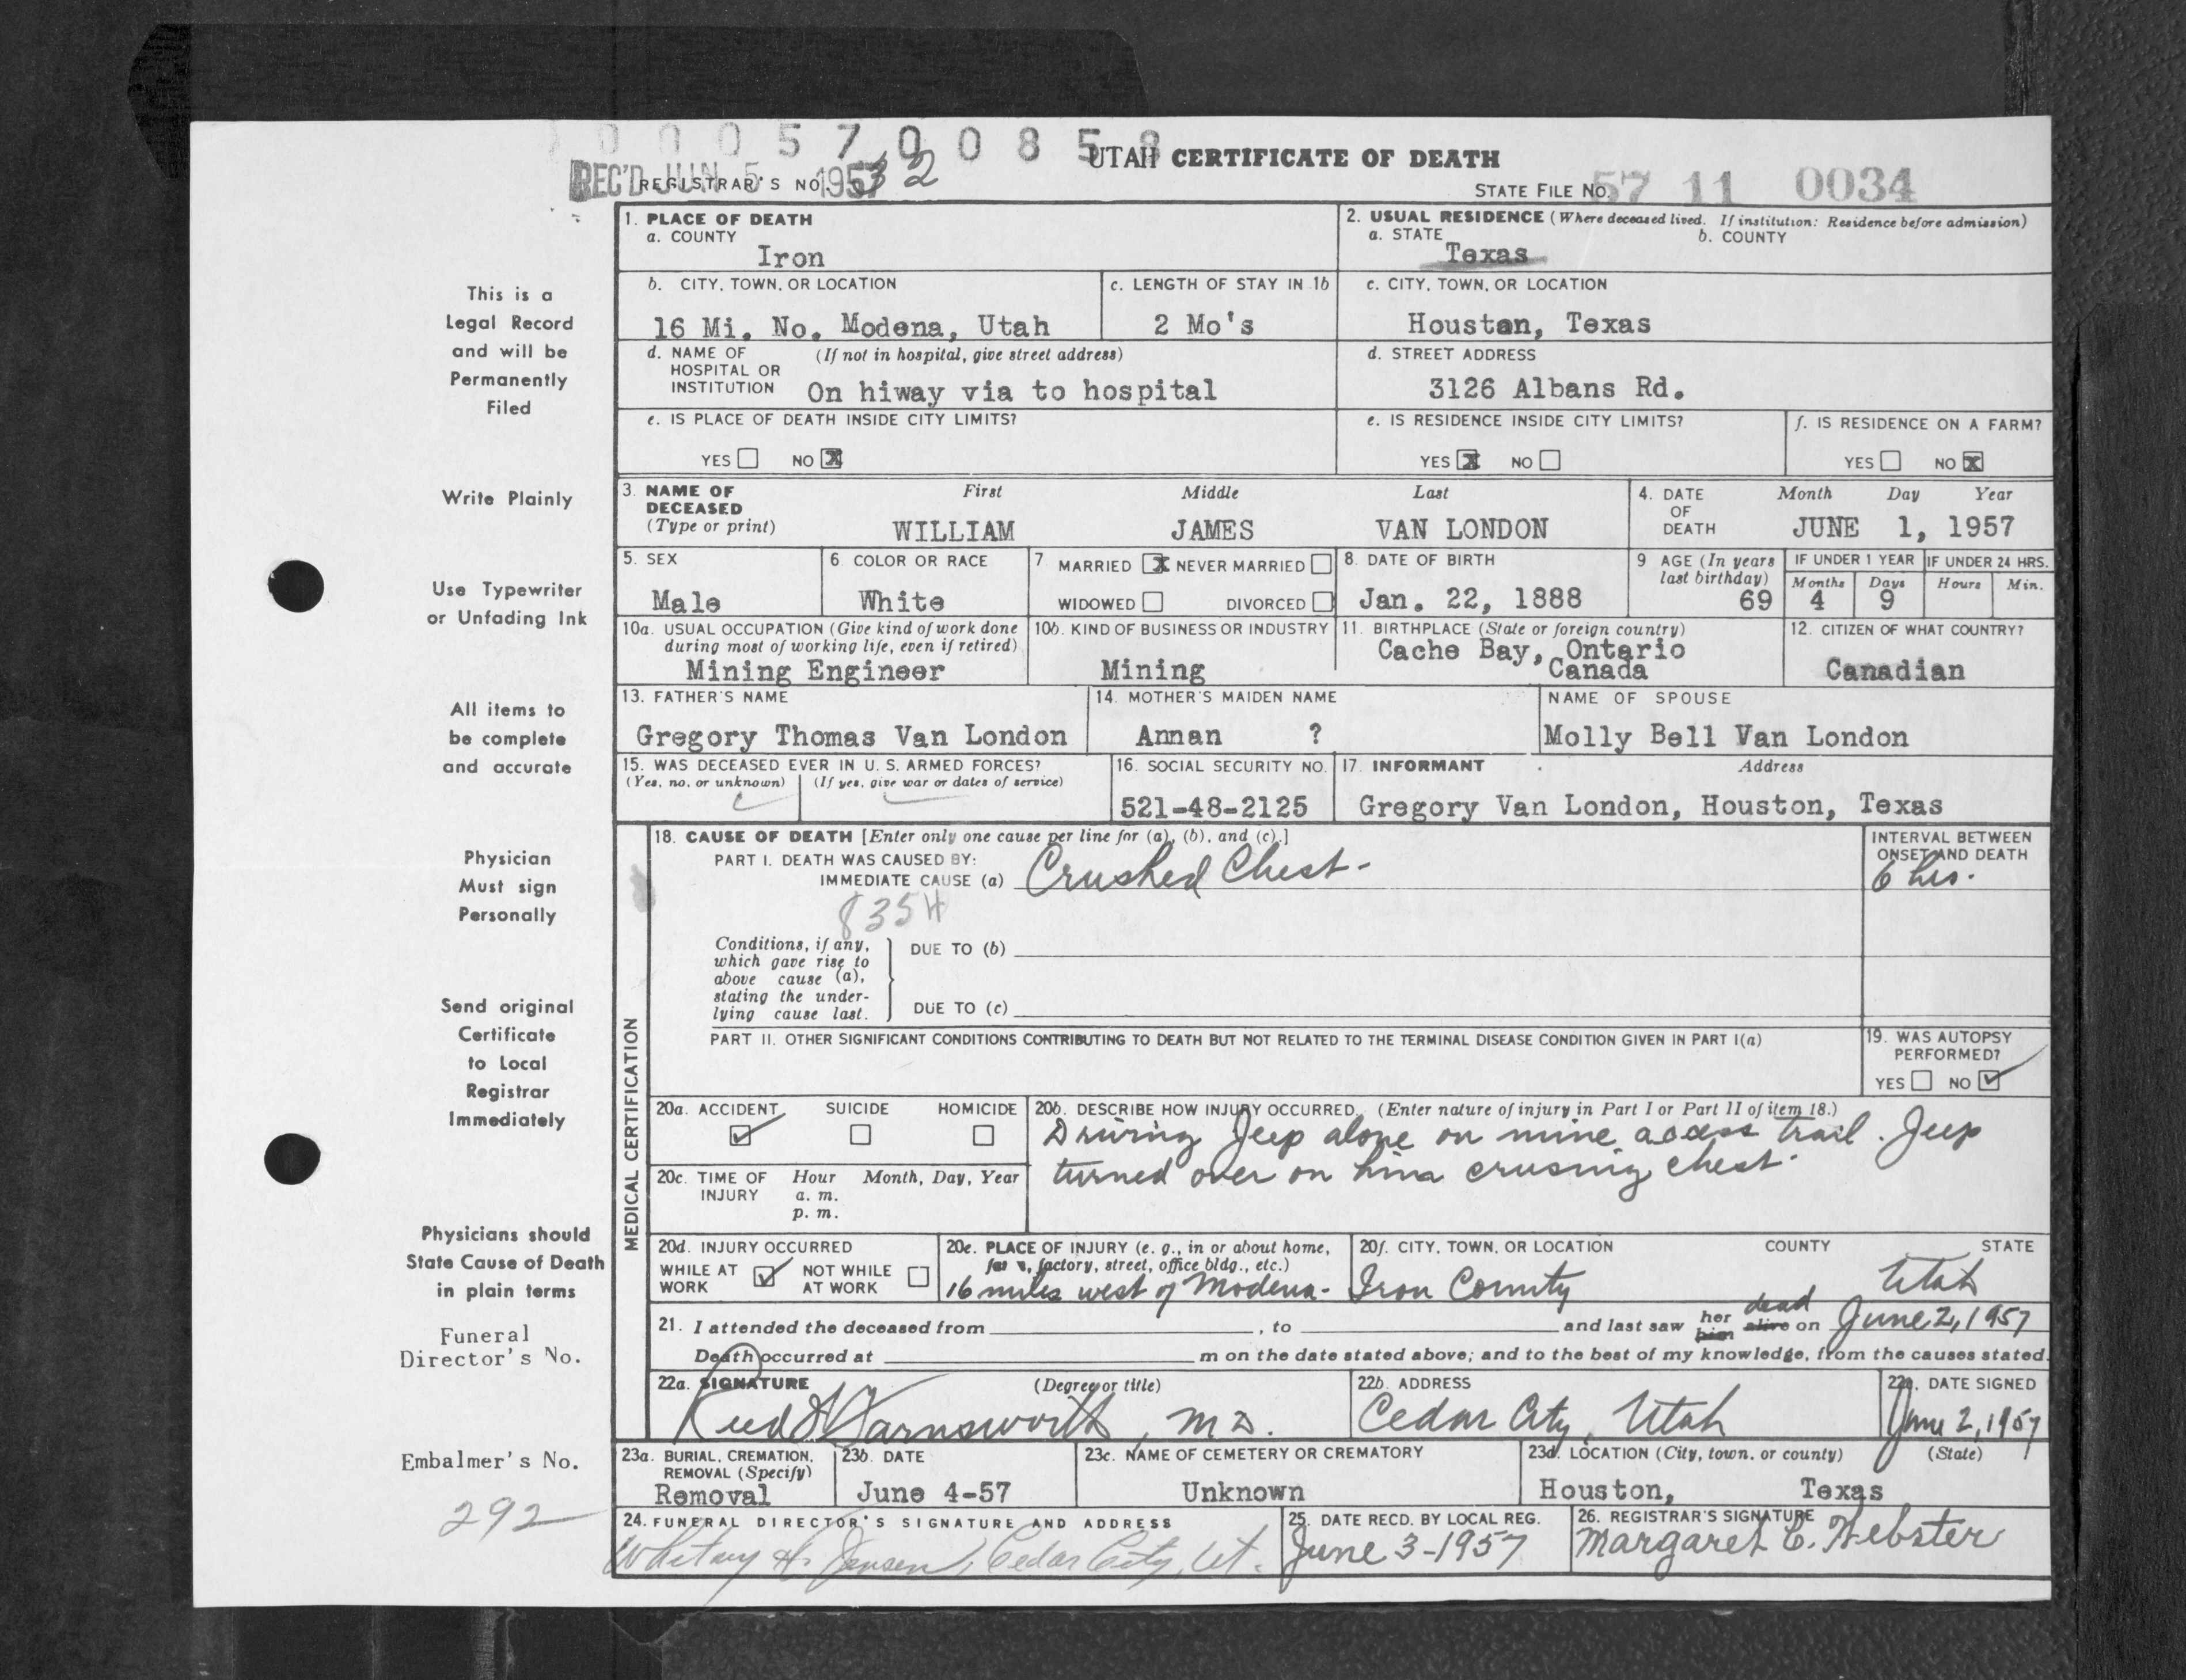 0 0 0 5 7 0 0 8 5 8
UTAH CERTIFICATE OF DEATH
REC'D JUN 5 1957
REGISTRAR'S NO. 32
STATE FILE NO. 57 11 0034
This is a
Legal Record
and will be
Permanently
Filed
Write Plainly
Use Typewriter
or Unfading Ink
All items to
be complete
and accurate
Physician
Must sign
Personally
Send original
Certificate
to Local
Registrar
Immediately
Physicians should
State Cause of Death
in plain terms
Funeral
Director's No.
Embalmer's No.
292
1. PLACE OF DEATH
a. COUNTY
Iron
2. USUAL RESIDENCE (Where deceased lived. If institution: Residence before admission)
a. STATE b. COUNTY
Texas
b. CITY, TOWN, OR LOCATION
16 Mi. No. Modena, Utah
c. LENGTH OF STAY IN 1b
2 Mo's
c. CITY, TOWN, OR LOCATION
Houston, Texas
d. NAME OF (If not in hospital, give street address)
HOSPITAL OR
INSTITUTION On hiway via to hospital
d. STREET ADDRESS
3126 Albans Rd.
e. IS PLACE OF DEATH INSIDE CITY LIMITS?
YES NO X
e. IS RESIDENCE INSIDE CITY LIMITS?
YES X NO
f. IS RESIDENCE ON A FARM?
YES NO X
3. NAME OF First Middle Last
DECEASED
(Type or print) WILLIAM JAMES VAN LONDON
4. DATE Month Day Year
OF
DEATH JUNE 1, 1957
5. SEX
Male
6. COLOR OR RACE
White
7 MARRIED X NEVER MARRIED
WIDOWED DIVORCED
8. DATE OF BIRTH
Jan. 22, 1888
9 AGE (In years
last birthday)
69
IF UNDER 1 YEAR
Months Days
4 9
IF UNDER 24 HRS.
Hours Min.
10a. USUAL OCCUPATION (Give kind of work done
during most of working life, even if retired)
Mining Engineer
10b. KIND OF BUSINESS OR INDUSTRY
Mining
11. BIRTHPLACE (State or foreign country)
Cache Bay, Ontario
Canada
12. CITIZEN OF WHAT COUNTRY?
Canadian
13. FATHER'S NAME
Gregory Thomas Van London
14. MOTHER'S MAIDEN NAME
Annan ?
NAME OF SPOUSE
Molly Bell Van London
15. WAS DECEASED EVER IN U. S. ARMED FORCES?
(Yes, no, or unknown) (If yes, give war or dates of service)
16. SOCIAL SECURITY NO.
521-48-2125
17. INFORMANT Address
Gregory Van London, Houston, Texas
MEDICAL CERTIFICATION
18. CAUSE OF DEATH [Enter only one cause per line for (a), (b), and (c).]
PART I. DEATH WAS CAUSED BY:
IMMEDIATE CAUSE (a) Crushed Chest -
INTERVAL BETWEEN
ONSET AND DEATH
6 hrs.
8354
Conditions, if any,
which gave rise to
above cause (a),
stating the under-
lying cause last.
DUE TO (b)
DUE TO (c)
PART II. OTHER SIGNIFICANT CONDITIONS CONTRIBUTING TO DEATH BUT NOT RELATED TO THE TERMINAL DISEASE CONDITION GIVEN IN PART I(a)
19. WAS AUTOPSY
PERFORMED?
YES NO
20a. ACCIDENT SUICIDE HOMICIDE
20b. DESCRIBE HOW INJURY OCCURRED. (Enter nature of injury in Part I or Part II of item 18.)
Driving Jeep alone on mine access trail. Jeep
turned over on him crusing chest.
20c. TIME OF Hour Month, Day, Year
INJURY a. m.
p. m.
20d. INJURY OCCURRED
WHILE AT NOT WHILE
WORK AT WORK
20e. PLACE OF INJURY (e. g., in or about home,
factory, street, office bldg., etc.)
16 miles west of Modena -
20f. CITY, TOWN, OR LOCATION COUNTY STATE
Iron County Utah
21. I attended the deceased from , to and last saw her him alive dead on June 2, 1957
Death occurred at m on the date stated above; and to the best of my knowledge, from the causes stated.
22a. SIGNATURE (Degree or title)
Reed Farnsworth, M D.
22b. ADDRESS
Cedar City, Utah
22c. DATE SIGNED
June 2, 1957
23a. BURIAL, CREMATION,
REMOVAL (Specify)
Removal
23b. DATE
June 4-57
23c. NAME OF CEMETERY OR CREMATORY
Unknown
23d. LOCATION (City, town, or county) (State)
Houston, Texas
24. FUNERAL DIRECTOR'S SIGNATURE AND ADDRESS
Whitney H. Jensen, Cedar City, Ut.
25. DATE RECD. BY LOCAL REG.
June 3-1957
26. REGISTRAR'S SIGNATURE
Margaret C. Webster